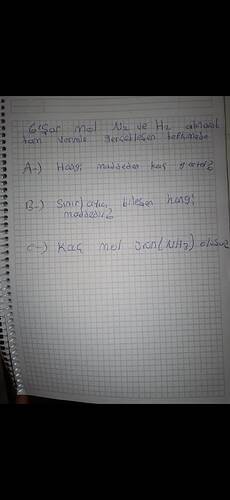 6'şar mol N2 ve H2 alınarak
tam verimle gerçekleşen tepkimede
A-) Hangi maddeden kaç g artar?
B-) Sınırlayıcı bileşen hangi
maddedir?
C-) Kaç mol ürün (NH3) oluşur?